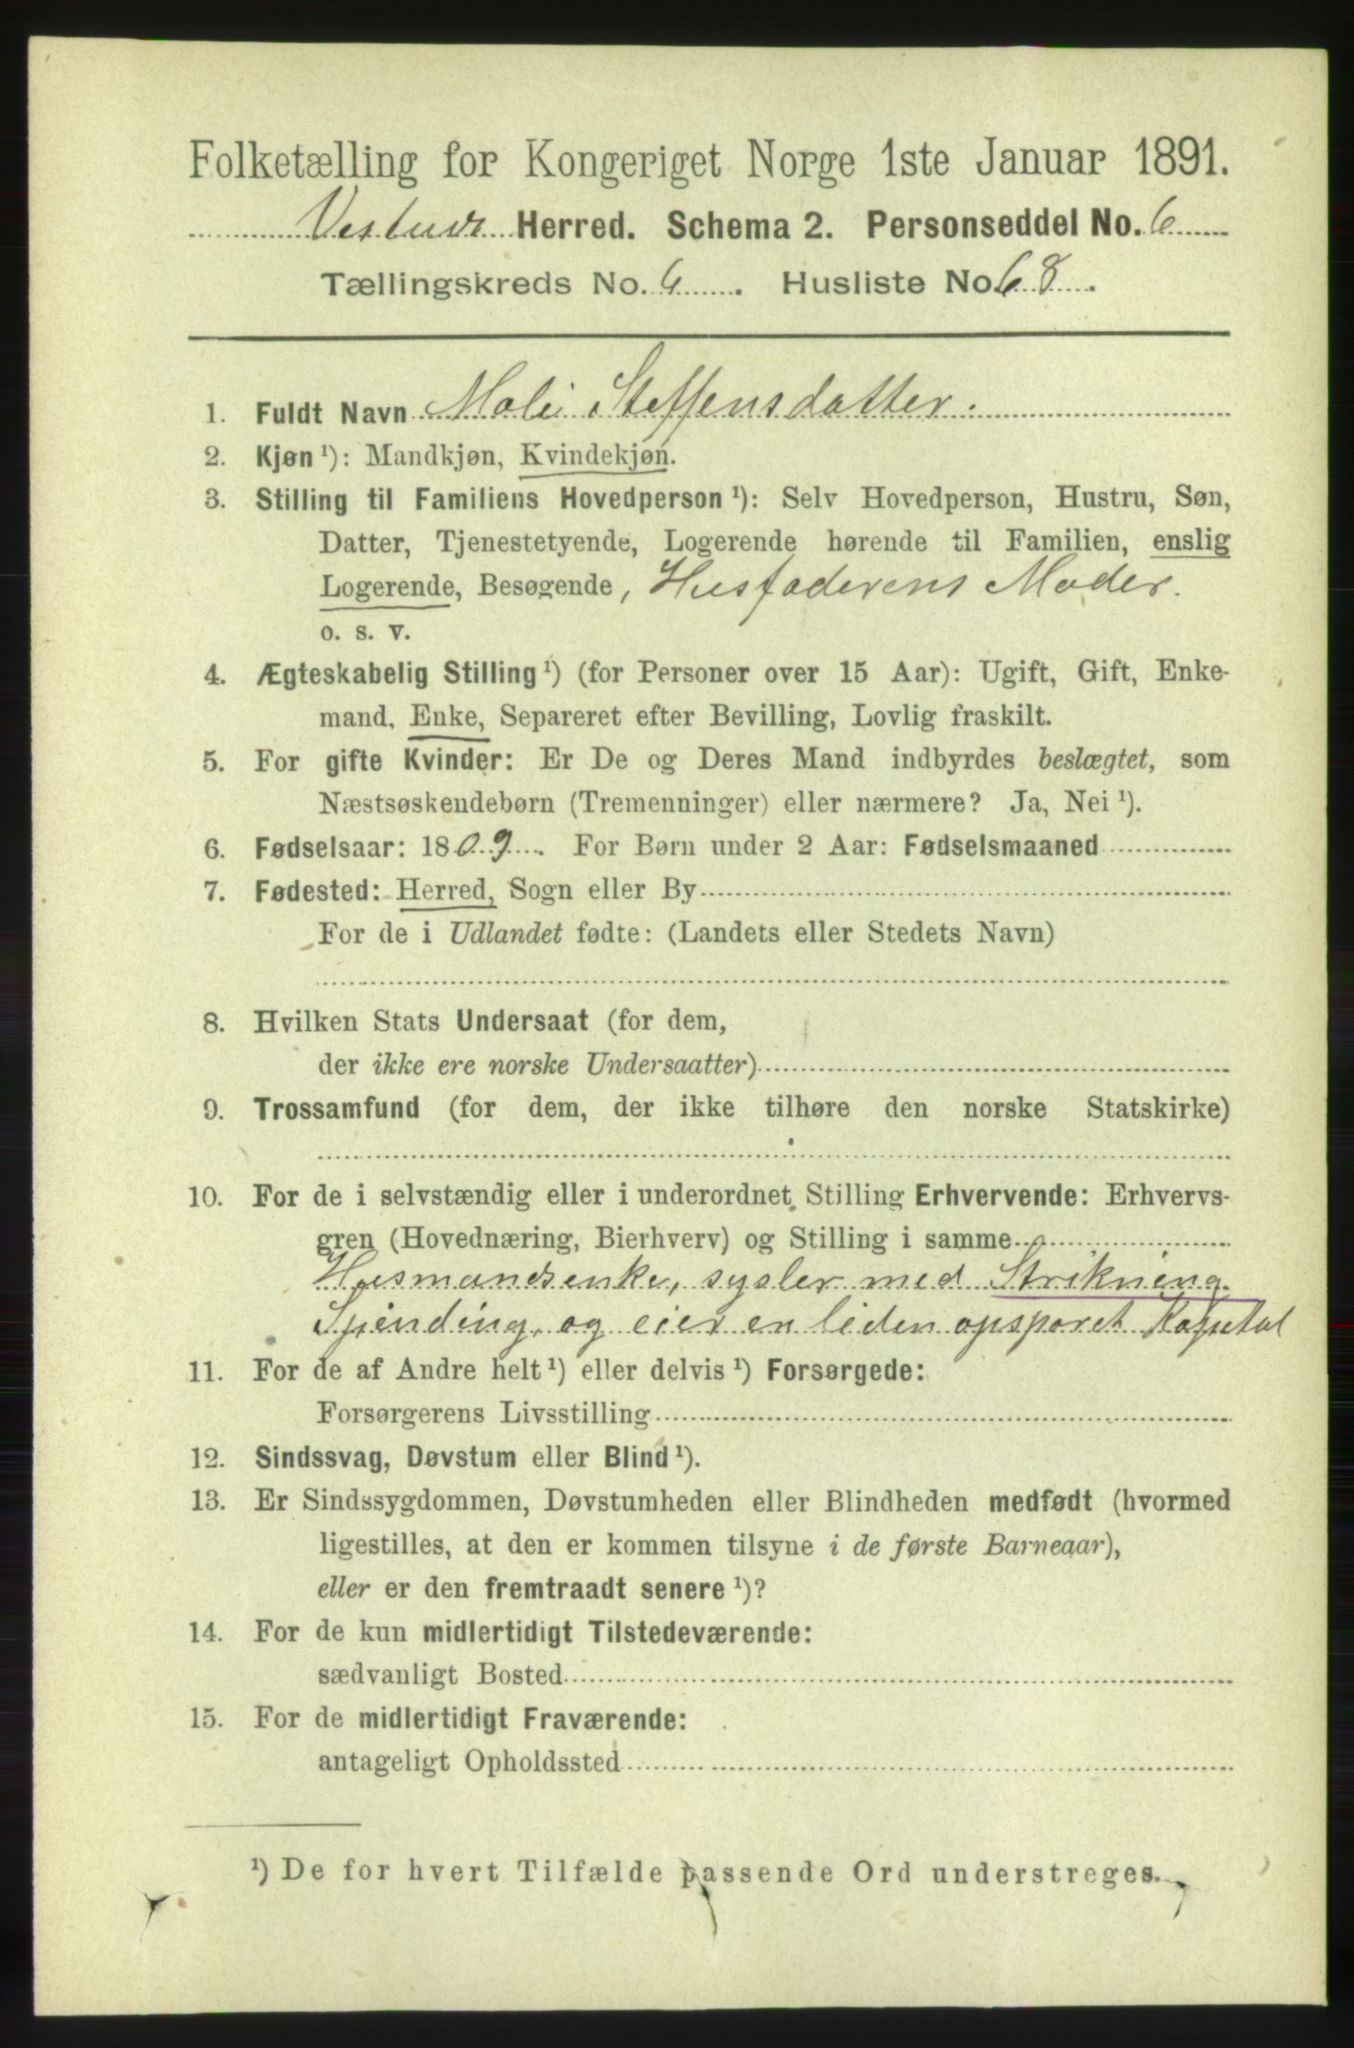 Folketælling for Kongeriget Norge 1ste Januar 1891.
Vestnes Herred. Schema 2. Personseddel No. 6
Tællingskreds No. 6. Husliste No. 68.
1. Fuldt Navn Mali Steffensdatter.
2. Kjøn ¹): Mandkjøn, Kvindekjøn.
3. Stilling til Familiens Hovedperson ¹): Selv Hovedperson, Hustru, Søn,
Datter, Tjenestetyende, Logerende hørende til Familien, enslig
Logerende, Besøgende, Husfaderens Moder.
o. s. v.
4. Ægteskabelig Stilling ¹) (for Personer over 15 Aar): Ugift, Gift, Enke-
mand, Enke, Separeret efter Bevilling, Lovlig fraskilt.
5. For gifte Kvinder: Er De og Deres Mand indbyrdes beslægtet, som
Næstsøskendebørn (Tremenninger) eller nærmere? Ja, Nei ¹).
6. Fødselsaar: 1809. For Børn under 2 Aar: Fødselsmaaned
7. Fødested: Herred, Sogn eller By
For de i Udlandet fødte: (Landets eller Stedets Navn)
8. Hvilken Stats Undersaat (for dem,
der ikke ere norske Undersaatter)
9. Trossamfund (for dem, der ikke tilhøre den norske Statskirke)
10. For de i selvstændig eller i underordnet Stilling Erhvervende: Erhvervs-
gren (Hovednæring, Bierhverv) og Stilling i samme
Husmandsenke, sysler med Strikning
Spinding, og eier en liden opsparet Kapital
11. For de af Andre helt ¹) eller delvis ¹) Forsørgede:
Forsørgerens Livsstilling
12. Sindssvag, Døvstum eller Blind ¹).
13. Er Sindssygdommen, Døvstumheden eller Blindheden medfødt (hvormed
ligestilles, at den er kommen tilsyne i de første Barneaar),
eller er den fremtraadt senere ¹)?
14. For de kun midlertidigt Tilstedeværende:
sædvanligt Bosted
15. For de midlertidigt Fraværende:
antageligt Opholdssted
¹) De for hvert Tilfælde passende Ord understreges.